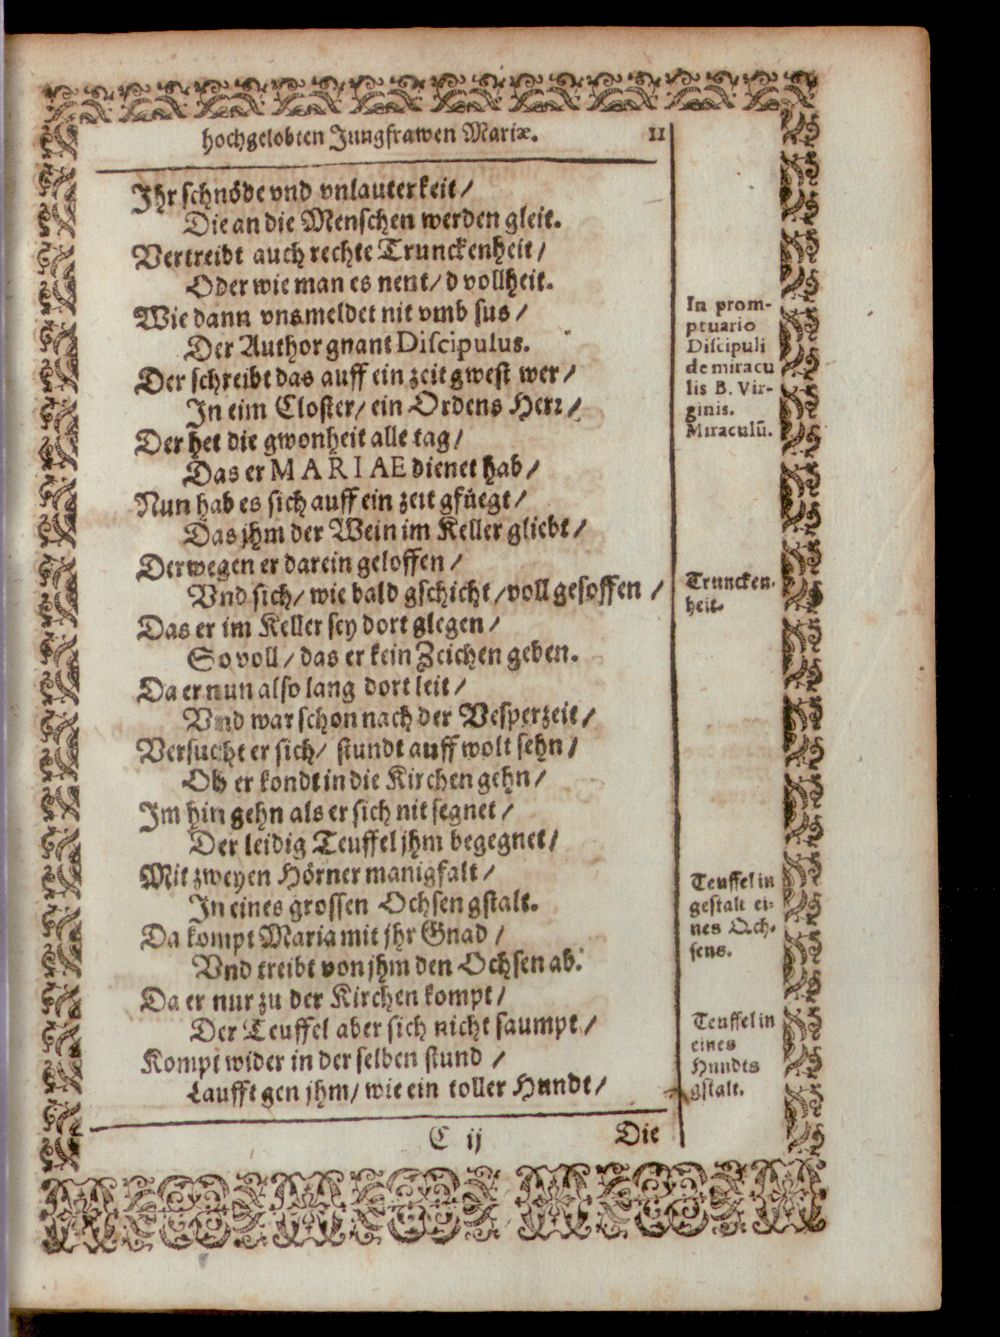 hochgelobten Jungfrawen Mariæ. 11
Ihr schnöde vnd vnlauterkeit /
Die an die Menschen werden gleit.
Vertreibt auch rechte Trunckenheit /
Oder wie man es nent / d vollheit.
Wie dann vns meldet nit vmb sus /
Der Author gnant Discipulus.
In prom-
ptuario
Discipuli
de miracu
lis B. Vir-
ginis.
Miraculũ.
Der schreibt das auff ein zeit gwest wer /
In eim Closter / ein Ordens Herr /
Der het die gwonheit alle tag /
Das er MARIAE dienet hab /
Nun hab es sich auff ein zeit gfüegt /
Das jhm der Wein im Keller gliebt /
Derwegen er darein geloffen /
Vnd sich / wie bald gschicht / voll gesoffen /
Truncken-
heit.
Das er im Keller sey dort glegen /
So voll / das er kein Zeichen geben.
Da er nun also lang dort leit /
Vnd war schon nach der Vesperzeit /
Versucht er sich / stundt auff wolt sehn /
Ob er kondt in die Kirchen gehn /
Im hin gehn als er sich nit segnet /
Der leidig Teuffel jhm begegnet /
Mit zweyen Hörner manigfalt /
In eines grossen Ochsen gstalt.
Teuffel in
gestalt ei-
nes Och-
sens.
Da kompt Maria mit jhr Gnad /
Vnd treibt von jhm den Ochsen ab.
Da er nur zu der Kirchen kompt /
Der Teuffel aber sich nicht saumpt /
Teuffel in
eines
Hundts
gstalt.
Kompt wider in der selben stund /
Laufft gen jhm / wie ein toller Hundt /
C ij Die